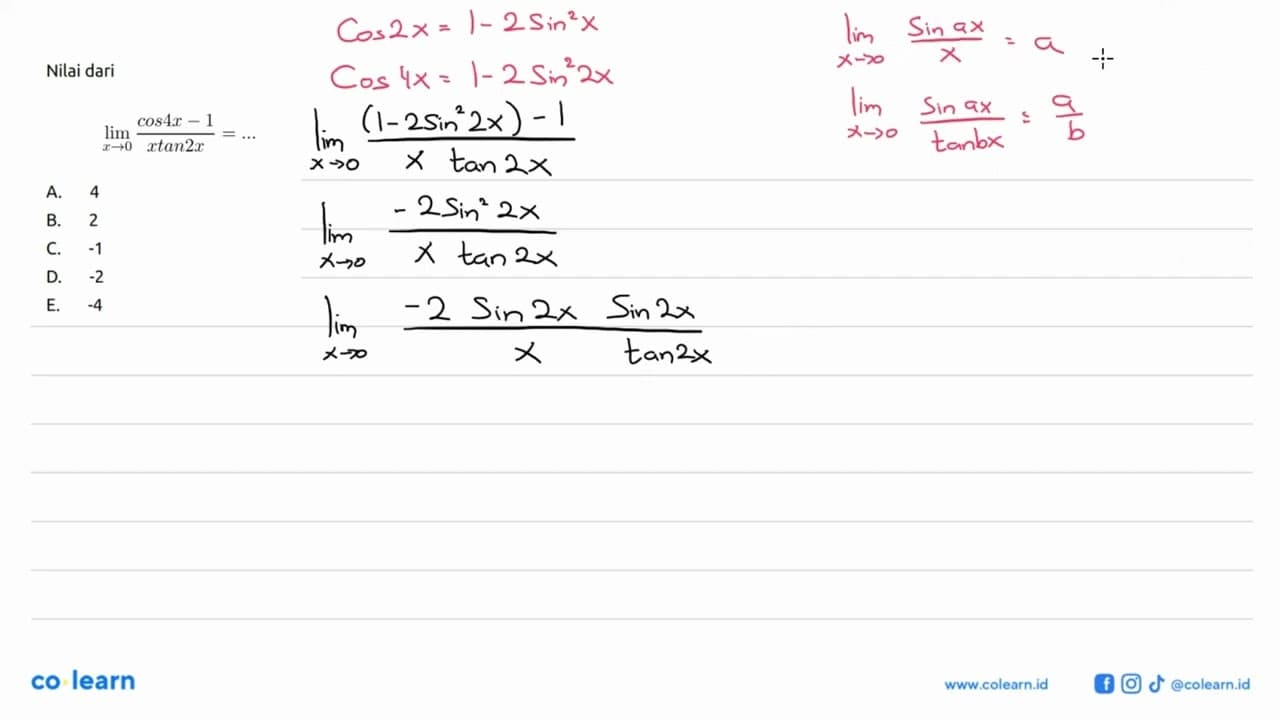 Nilai dari
lim x→0 cos4x − 1 / xtan2x = ...
A. 4
B. 2
C. -1
D. -2
E. -4
Cos2x = 1 - 2Sin²x
Cos4x = 1 - 2Sin²2x
lim x→0 (1-2Sin²2x) - 1 / x tan2x
lim x→0 -2Sin²2x / x tan2x
lim x→0 -2 Sin2x Sin2x / x tan2x
lim x→0 Sin ax / x = a
lim x→0 Sin ax / tanbx = a / b
co·learn
www.colearn.id
@colearn.id